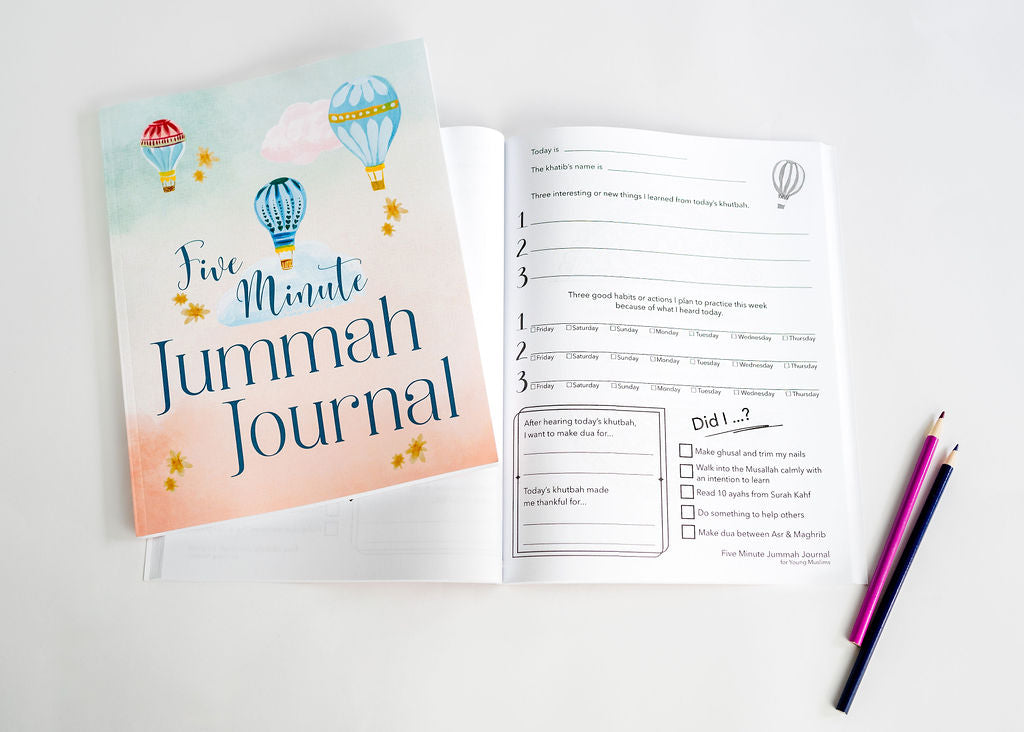 Five
Minute
Jummah
Journal
Today is
The khatib's name is
Three interesting or new things I learned from today's khutbah.
1
2
3
Three good habits or actions I plan to practice this week
because of what I heard today.
1 Friday Saturday Sunday Monday Tuesday Wednesday Thursday
2 Friday Saturday Sunday Monday Tuesday Wednesday Thursday
3 Friday Saturday Sunday Monday Tuesday Wednesday Thursday
After hearing today's khutbah,
I want to make dua for...
Today's khutbah made
me thankful for...
Did I ...?
Make ghusal and trim my nails
Walk into the Musallah calmly with
an intention to learn
Read 10 ayahs from Surah Kahf
Do something to help others
Make dua between Asr & Maghrib
Five Minute Jummah Journal
for Young Muslims